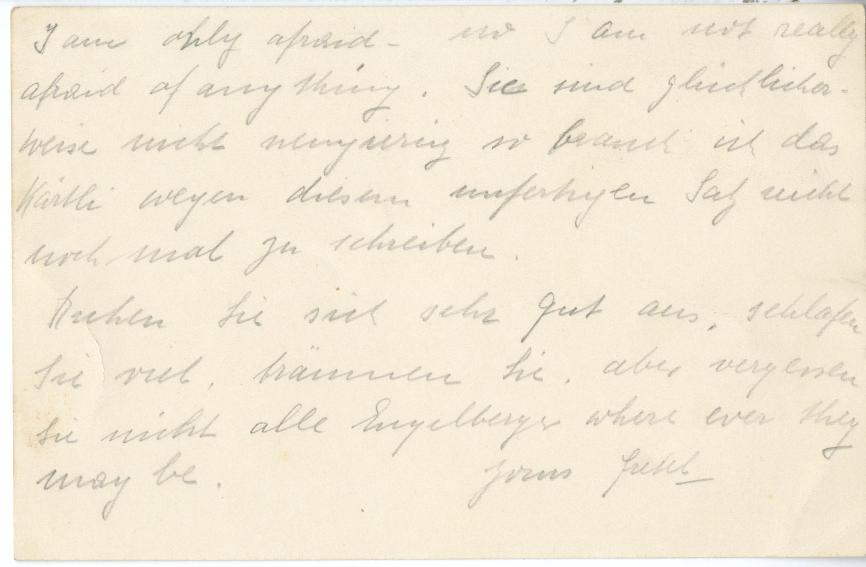 I am only afraid - no I am not really
afraid of anything. Sie sind glücklicher-
weise nicht neugierig so brauch ich das
Kärtli wegen diesem unfertigen Satz nicht
noch mal zu schreiben.
Ruhen Sie sich sehr gut aus, schlafen
Sie viel, träumen Sie, aber vergessen
Sie nicht alle Engelberger where ever they
may be.
Yours